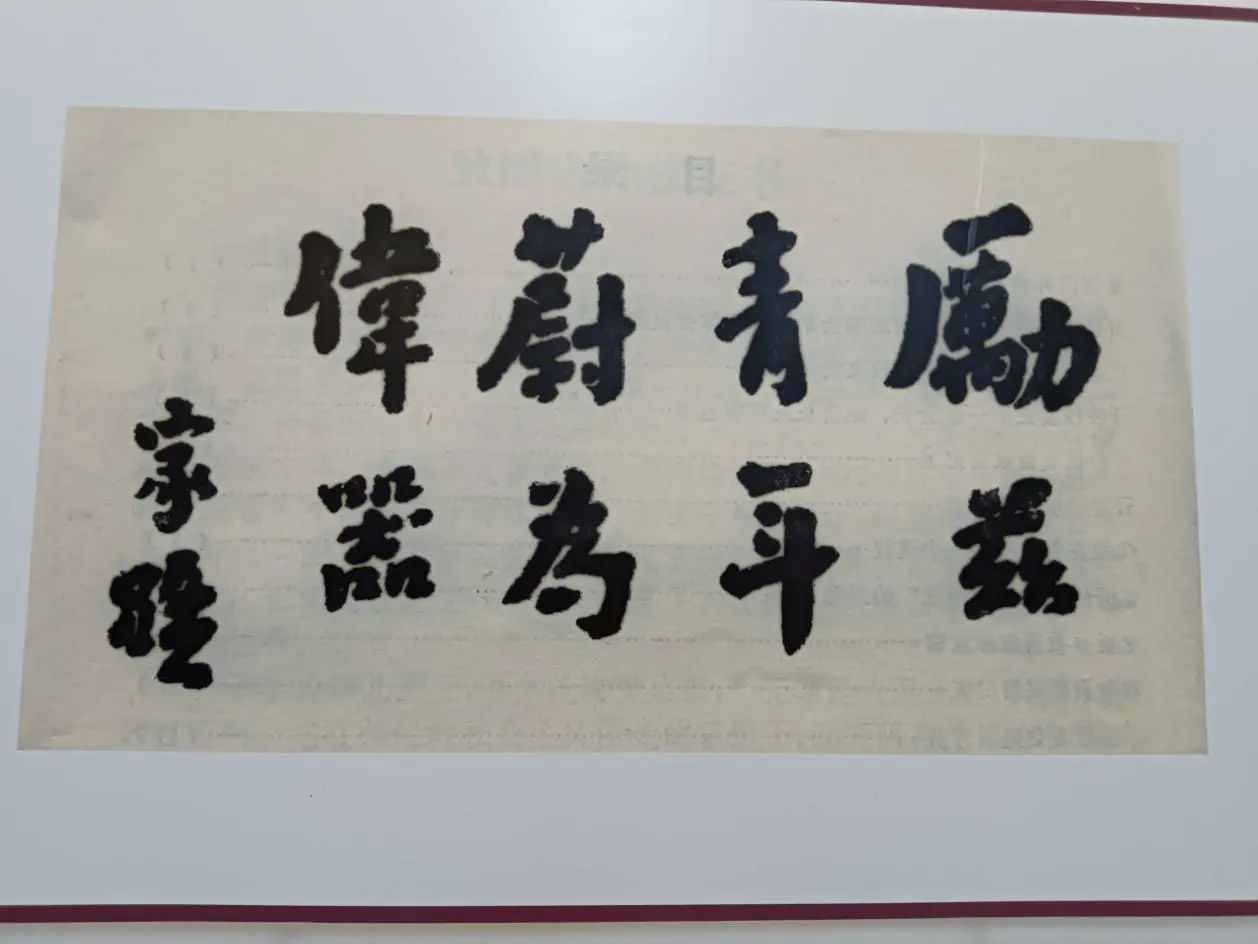 勵茲
青年
蔚為
偉器
家